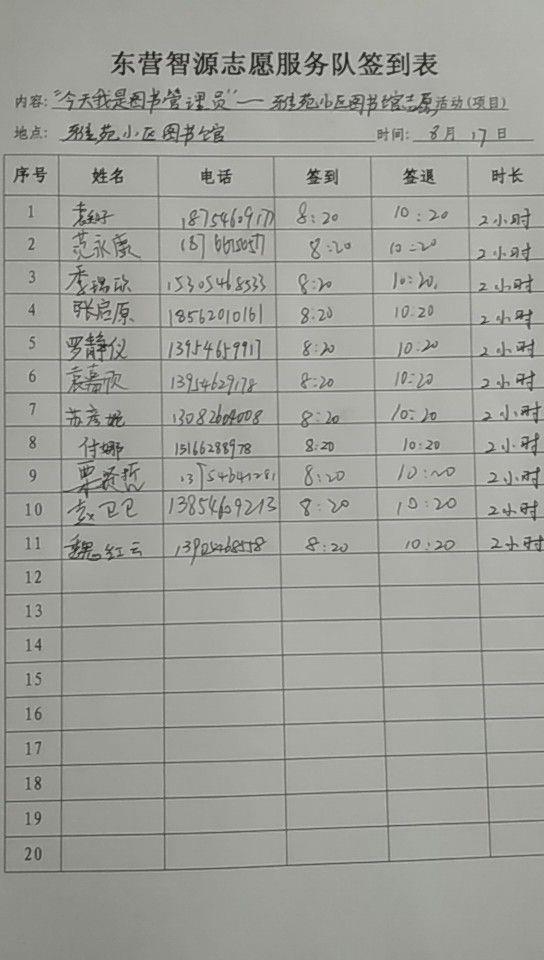 东营智源志愿服务队签到表
内容："今天我是图书管理员"一雅苑小区图书馆志愿活动(项目)
地点：雅苑小区图书馆 时间：8月17日
序号 姓名 电话 签到 签退 时长
1 18754609177 8:20 10:20 2小时
2 范永康 8:20 10:20 2小时
3 季瑞欣 15305468533 8:20 10:20. 2小时
4 张启原 18562010161 8:20 10:20 2小时
5 罗静仪 13954659917 8:20 10:20 2小时
6 袁嘉欣 13954629178 8:20 10:20 2小时
7 苏彦妮 13082604008 8:20 10:20 2小时
8 付娜 15166288978 8:20 10:20 2小时
9 13754641281 8:20 10:20 2小时
10 赵卫卫 13854609213 8:20 10:20 2小时
11 魏红云 13905468558 8:20 10:20 2小时
12
13
14
15
16
17
18
19
20